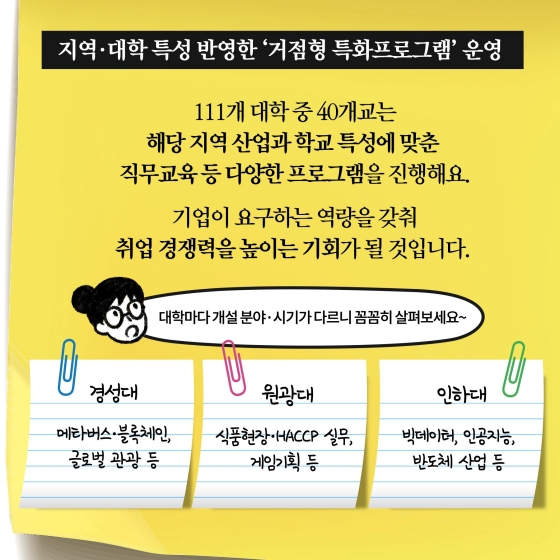 지역·대학 특성 반영한 ‘거점형 특화프로그램’ 운영
111개 대학 중 40개교는
해당 지역 산업과 학교 특성에 맞춘
직무교육 등 다양한 프로그램을 진행해요.
기업이 요구하는 역량을 갖춰
취업 경쟁력을 높이는 기회가 될 것입니다.
대학마다 개설 분야·시기가 다르니 꼼꼼히 살펴보세요~
경성대
메타버스·블록체인,
글로벌 관광 등
원광대
식품현장·HACCP 실무,
게임기획 등
인하대
빅데이터, 인공지능,
반도체 산업 등